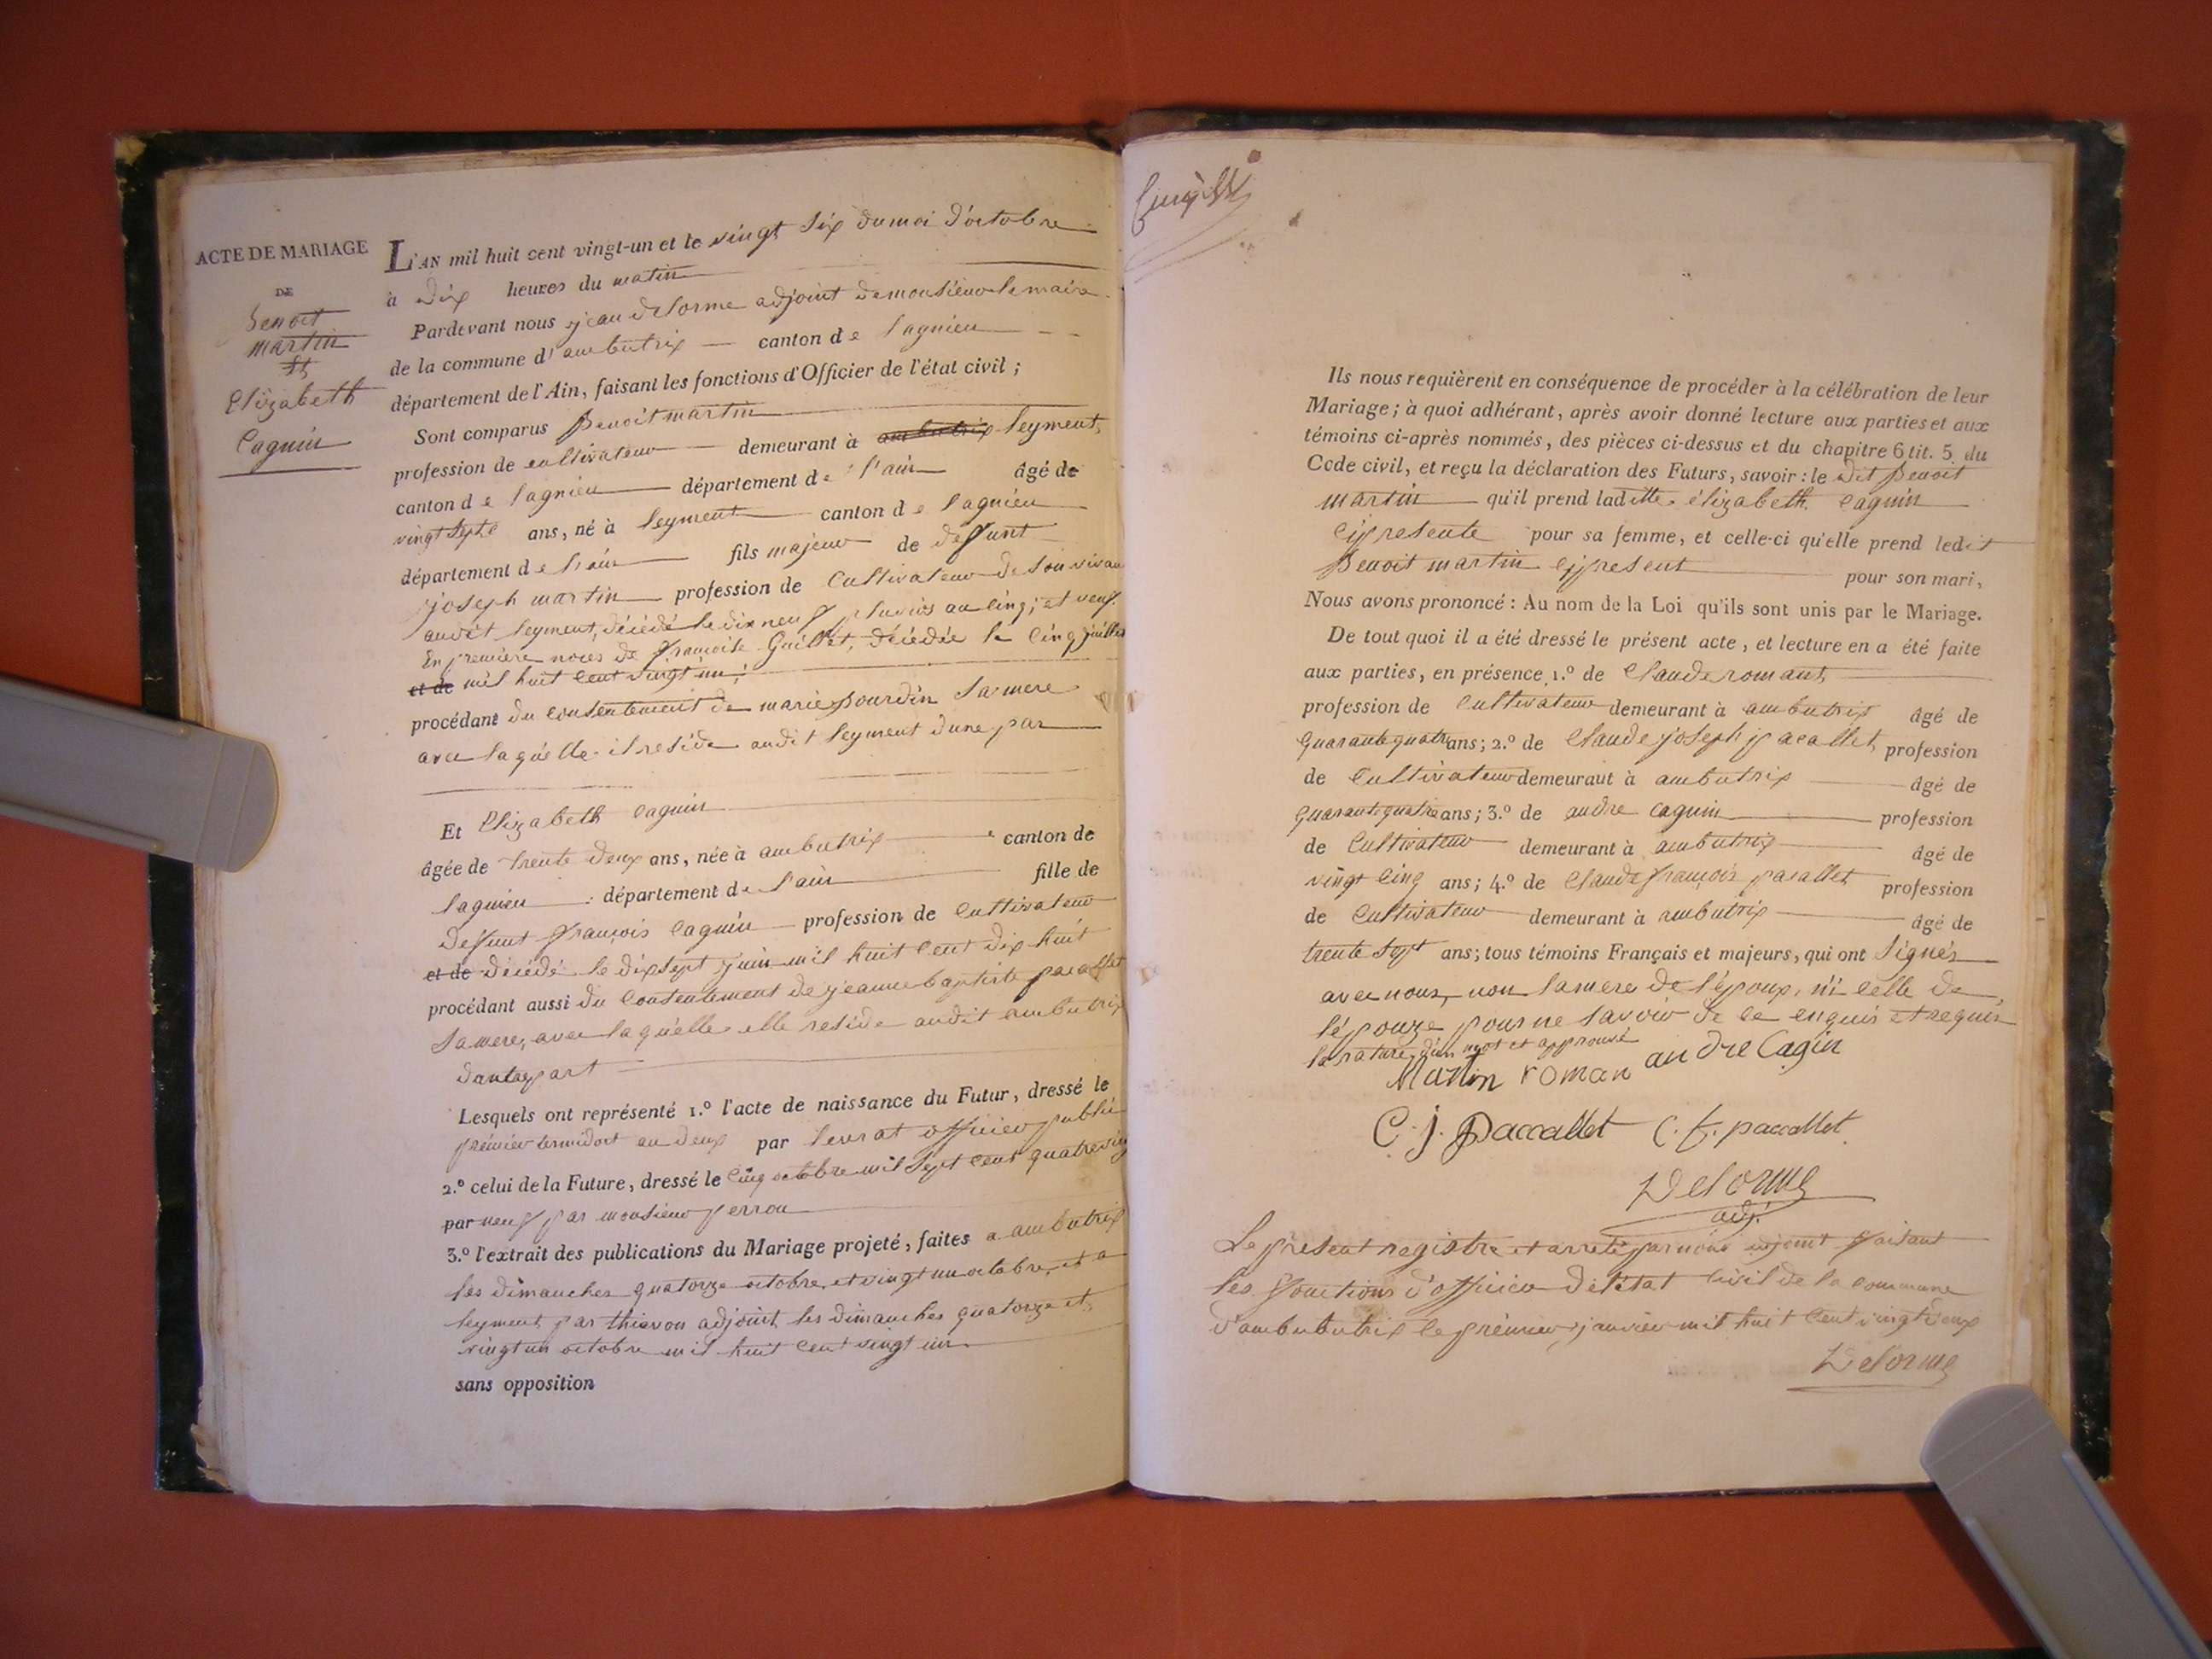 ACTE DE MARIAGE
DE
Benoit
martin
Et
Elizabeth
Caguin
L'AN mil huit cent vingt-un et le vingt six du moi d'octobre
à dix heures du matin
Pardevant nous jean delorme adjoint de monsieur le maire
de la commune d'ambutrix canton de lagnieu
département de l'Ain, faisant les fonctions d'Officier de l'état civil ;
Sont comparus Benoit martin
profession de cultivateur demeurant à ambutrix leyment,
canton de lagnieu département de l'ain âgé de
vingt septe ans, né à leyment canton de lagnieu
département de l'ain fils majeur de defunt
joseph martin profession de Cultivateur de son vivan
audit leyment, décédé le dix neuf pluvios an cinq ; et veuf
En premiere noces de françoise Guillet, décédée le cinq juillet
et de mil huit cent vingt un ;
procédant du consentement de marie pourdin sa mere
avec laquelle il reside audit leyment d'une par
Et Elizabeth caguin
âgée de trente deux ans, née à ambutrix canton de
lagnieu département de l'ain fille de
defunt françois caguin profession de cultivateur
et de décédé le dix sept juin mil huit cent dix huit
procédant aussi du consentement de jeanne baptiste pacallet
sa mere, avec laquelle elle reside audit ambutrix
dautre part
Lesquels ont représenté 1.º l'acte de naissance du Futur, dressé le
premier termidort an deux par leurat officier public
2.º celui de la Future, dressé le cinq octobre mil sept cent quatre ving
par neuf par monsieur perron
3.º l'extrait des publications du Mariage projeté, faites a ambutrix
les dimanches quatorze octobre et vingt un octobre, et a
leyment par thievon adjoint les dimanches quatorze et
vingt un octobre mil huit cent vingt un
sans opposition
Ils nous requièrent en conséquence de procéder à la célébration de leur
Mariage ; à quoi adhérant, après avoir donné lecture aux parties et aux
témoins ci-après nommés, des pièces ci-dessus et du chapitre 6 tit. 5. du
Code civil, et reçu la déclaration des Futurs, savoir : le dit Benoit
martin qu'il prend laditte élizabeth caguin
cy presente pour sa femme, et celle-ci qu'elle prend ledit
Benoit martin cy present pour son mari,
Nous avons prononcé : Au nom de la Loi qu'ils sont unis par le Mariage.
De tout quoi il a été dressé le présent acte, et lecture en a été faite
aux parties, en présence 1.º de Claude romant
profession de Cultivateur demeurant à ambutrix âgé de
quarante quatre ans ; 2.º de Claude joseph pacallet profession
de Cultivateur demeurant à ambutrix âgé de
quarante quatre ans ; 3.º de andre caguin profession
de Cultivateur demeurant à ambutrix âgé de
vingt cinq ans ; 4.º de Claude françois pacallet profession
de Cultivateur demeurant à ambutrix âgé de
trente sept ans ; tous témoins Français et majeurs, qui ont signés
avec nous, non la mere de l'époux, ni celle de
l'épouze pour ne savoir de ce enquis et requis
la rature d'un mot et approuvé
Martin roman andre Cagin
C. j. Paccallet C. f. paccallet
Delorme
adj.
Le present registre et arreté par nous adjoint faisant
les fonctions d'officier de l'état civil de la commune
d'ambubutrix le premier janvier mil huit cent vingt deux
Delorme